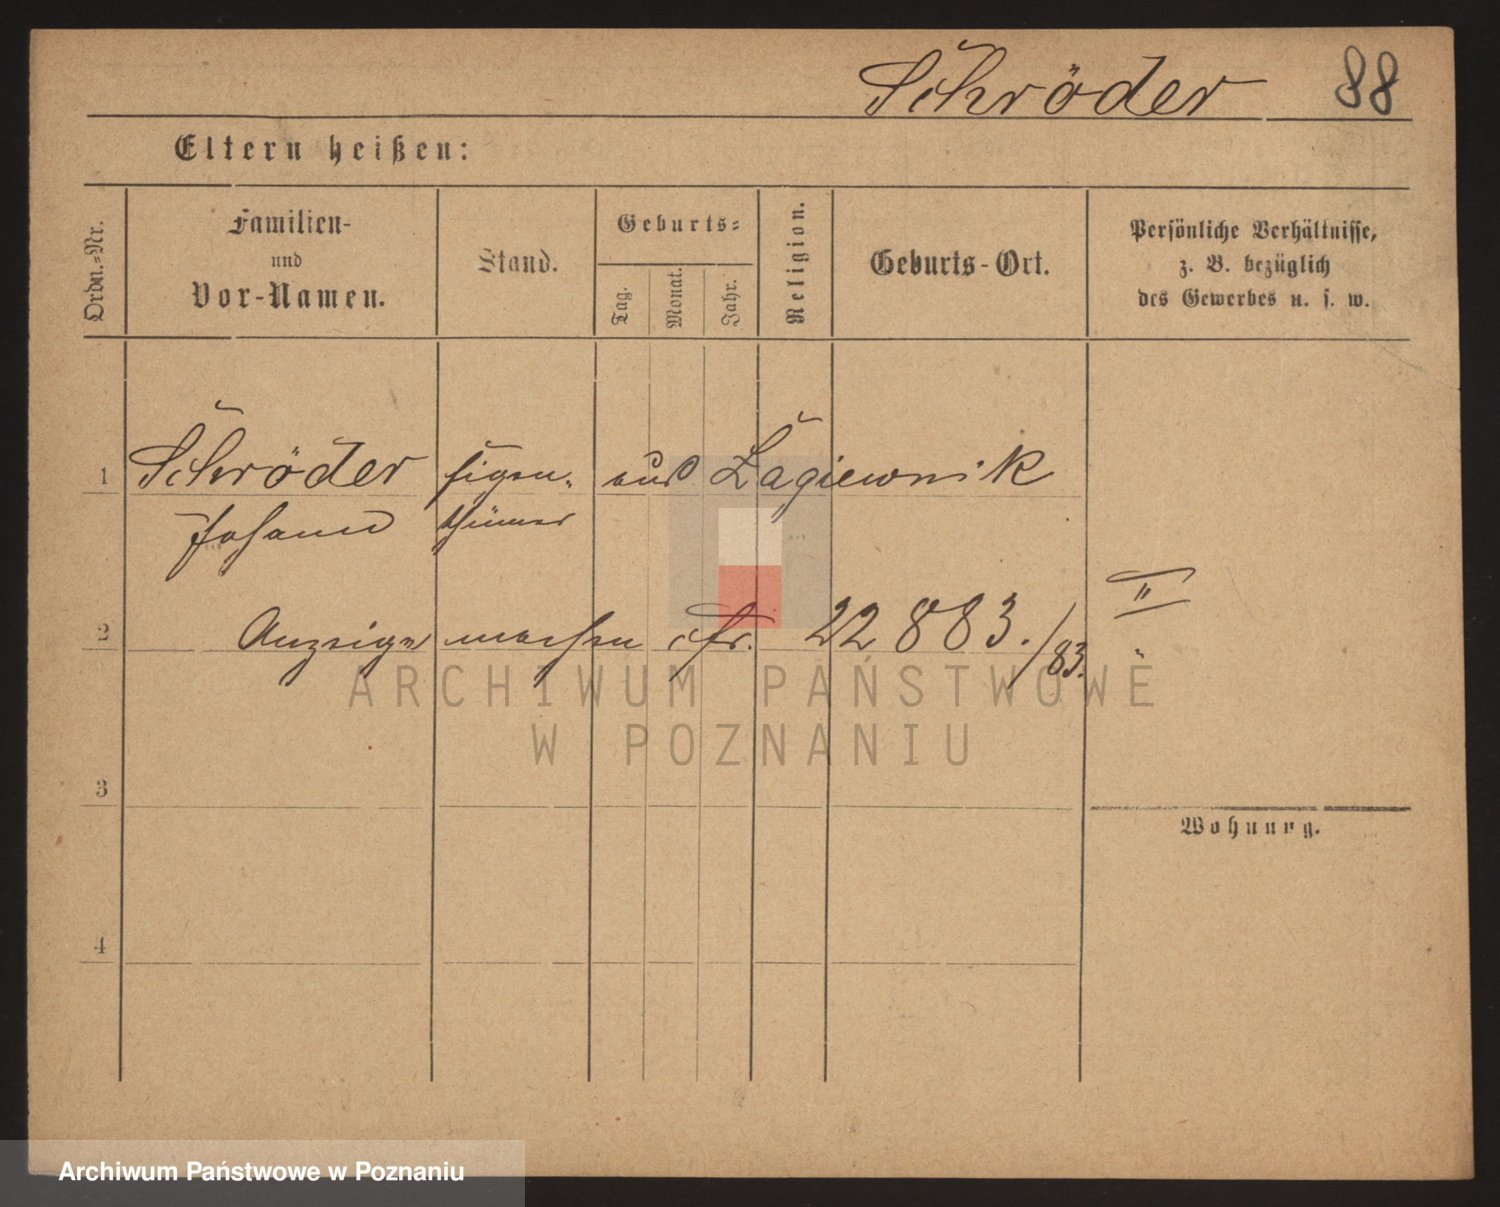 Schröder 88
Eltern heißen:
Ordn.-Nr.
Familien-
und
Vor-Namen.
Stand.
Geburts-
Tag.
Monat.
Jahr.
Religion.
Geburts-Ort.
Persönliche Verhältnisse,
z. B. bezüglich
des Gewerbes u. s. w.
1 Schröder Eigen- aus Łagiewnik
Johann thümer
2 Anzeige machen cfr. 22883./83.
II
3
Wohnung.
4
ARCHIWUM PAŃSTWOWE
W POZNANIU
Archiwum Państwowe w Poznaniu